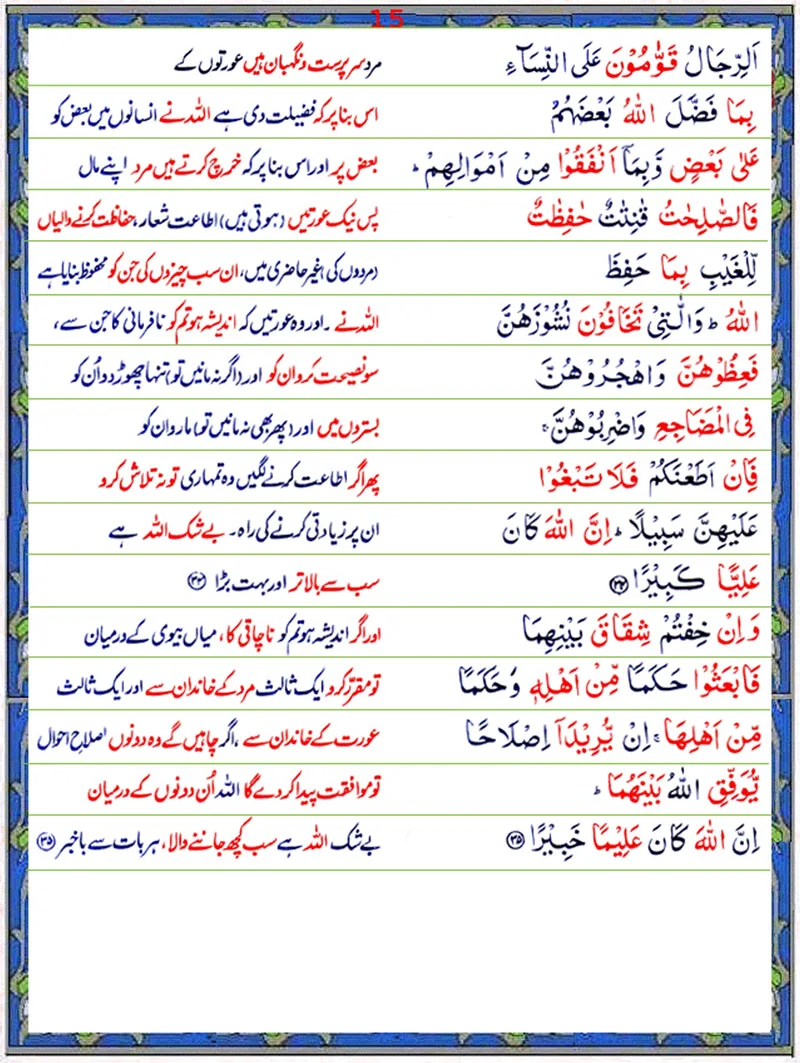 15
اَلرِّجَالُ قَوّٰمُوْنَ عَلَى النِّسَآءِ مرد سرپرست و نگہبان ہیں عورتوں کے
بِمَا فَضَّلَ اللّٰهُ بَعْضَهُمْ اس بنا پر کہ فضیلت دی ہے اللہ نے انسانوں میں بعض کو
عَلٰى بَعْضٍ وَّبِمَاۤ اَنْفَقُوْا مِنْ اَمْوَالِهِمْ ؕ بعض پر اور اس بنا پر کہ خرچ کرتے ہیں مرد اپنے مال
فَالصّٰلِحٰتُ قٰنِتٰتٌ حٰفِظٰتٌ پس نیک عورتیں (ہوتی ہیں) اطاعت شعار، حفاظت کرنے والیاں
لِّلْغَيْبِ بِمَا حَفِظَ (مردوں کی) غیر حاضری میں، ان سب چیزوں کی جن کو محفوظ بنایا ہے
اللّٰهُ ؕ وَالّٰتِىْ تَخَافُوْنَ نُشُوْزَهُنَّ اللہ نے ۔ اور وہ عورتیں کہ اندیشہ ہو تم کو نافرمانی کا جن سے،
فَعِظُوْهُنَّ وَاهْجُرُوْهُنَّ سو نصیحت کرو ان کو اور (اگر نہ مانیں تو) تنہا چھوڑ دو اُن کو
فِى الْمَضَاجِعِ وَاضْرِبُوْهُنَّ ۚ بستروں میں اور (پھر بھی نہ مانیں تو) مارو ان کو
فَاِنْ اَطَعْنَكُمْ فَلَا تَبْغُوْا پھر اگر اطاعت کرنے لگیں وہ تمہاری تو نہ تلاش کرو
عَلَيْهِنَّ سَبِيْلًا ؕ اِنَّ اللّٰهَ كَانَ ان پر زیادتی کرنے کی راہ۔ بے شک اللہ ہے
عَلِيًّا كَبِيْرًا ﴿۳۴﴾ سب سے بالاتر اور بہت بڑا ﴿۳۴﴾
وَ اِنْ خِفْتُمْ شِقَاقَ بَيْنِهِمَا اور اگر اندیشہ ہو تم کو ناچاقی کا، میاں بیوی کے درمیان
فَابْعَثُوْا حَكَمًا مِّنْ اَهْلِهٖ وَحَكَمًا تو مقرّر کرو ایک ثالث مرد کے خاندان سے اور ایک ثالث
مِّنْ اَهْلِهَا ۚ اِنْ يُّرِيْدَاۤ اِصْلَاحًا عورت کے خاندان سے ،اگر چاہیں گے وہ دونوں اصلاحِ احوال
يُّوَفِّقِ اللّٰهُ بَيْنَهُمَا ؕ تو موافقت پیدا کر دے گا اللہ اُن دونوں کے درمیان
اِنَّ اللّٰهَ كَانَ عَلِيْمًا خَبِيْرًا ﴿۳۵﴾ بے شک اللہ ہے سب کچھ جاننے والا، ہر بات سے باخبر ﴿۳۵﴾